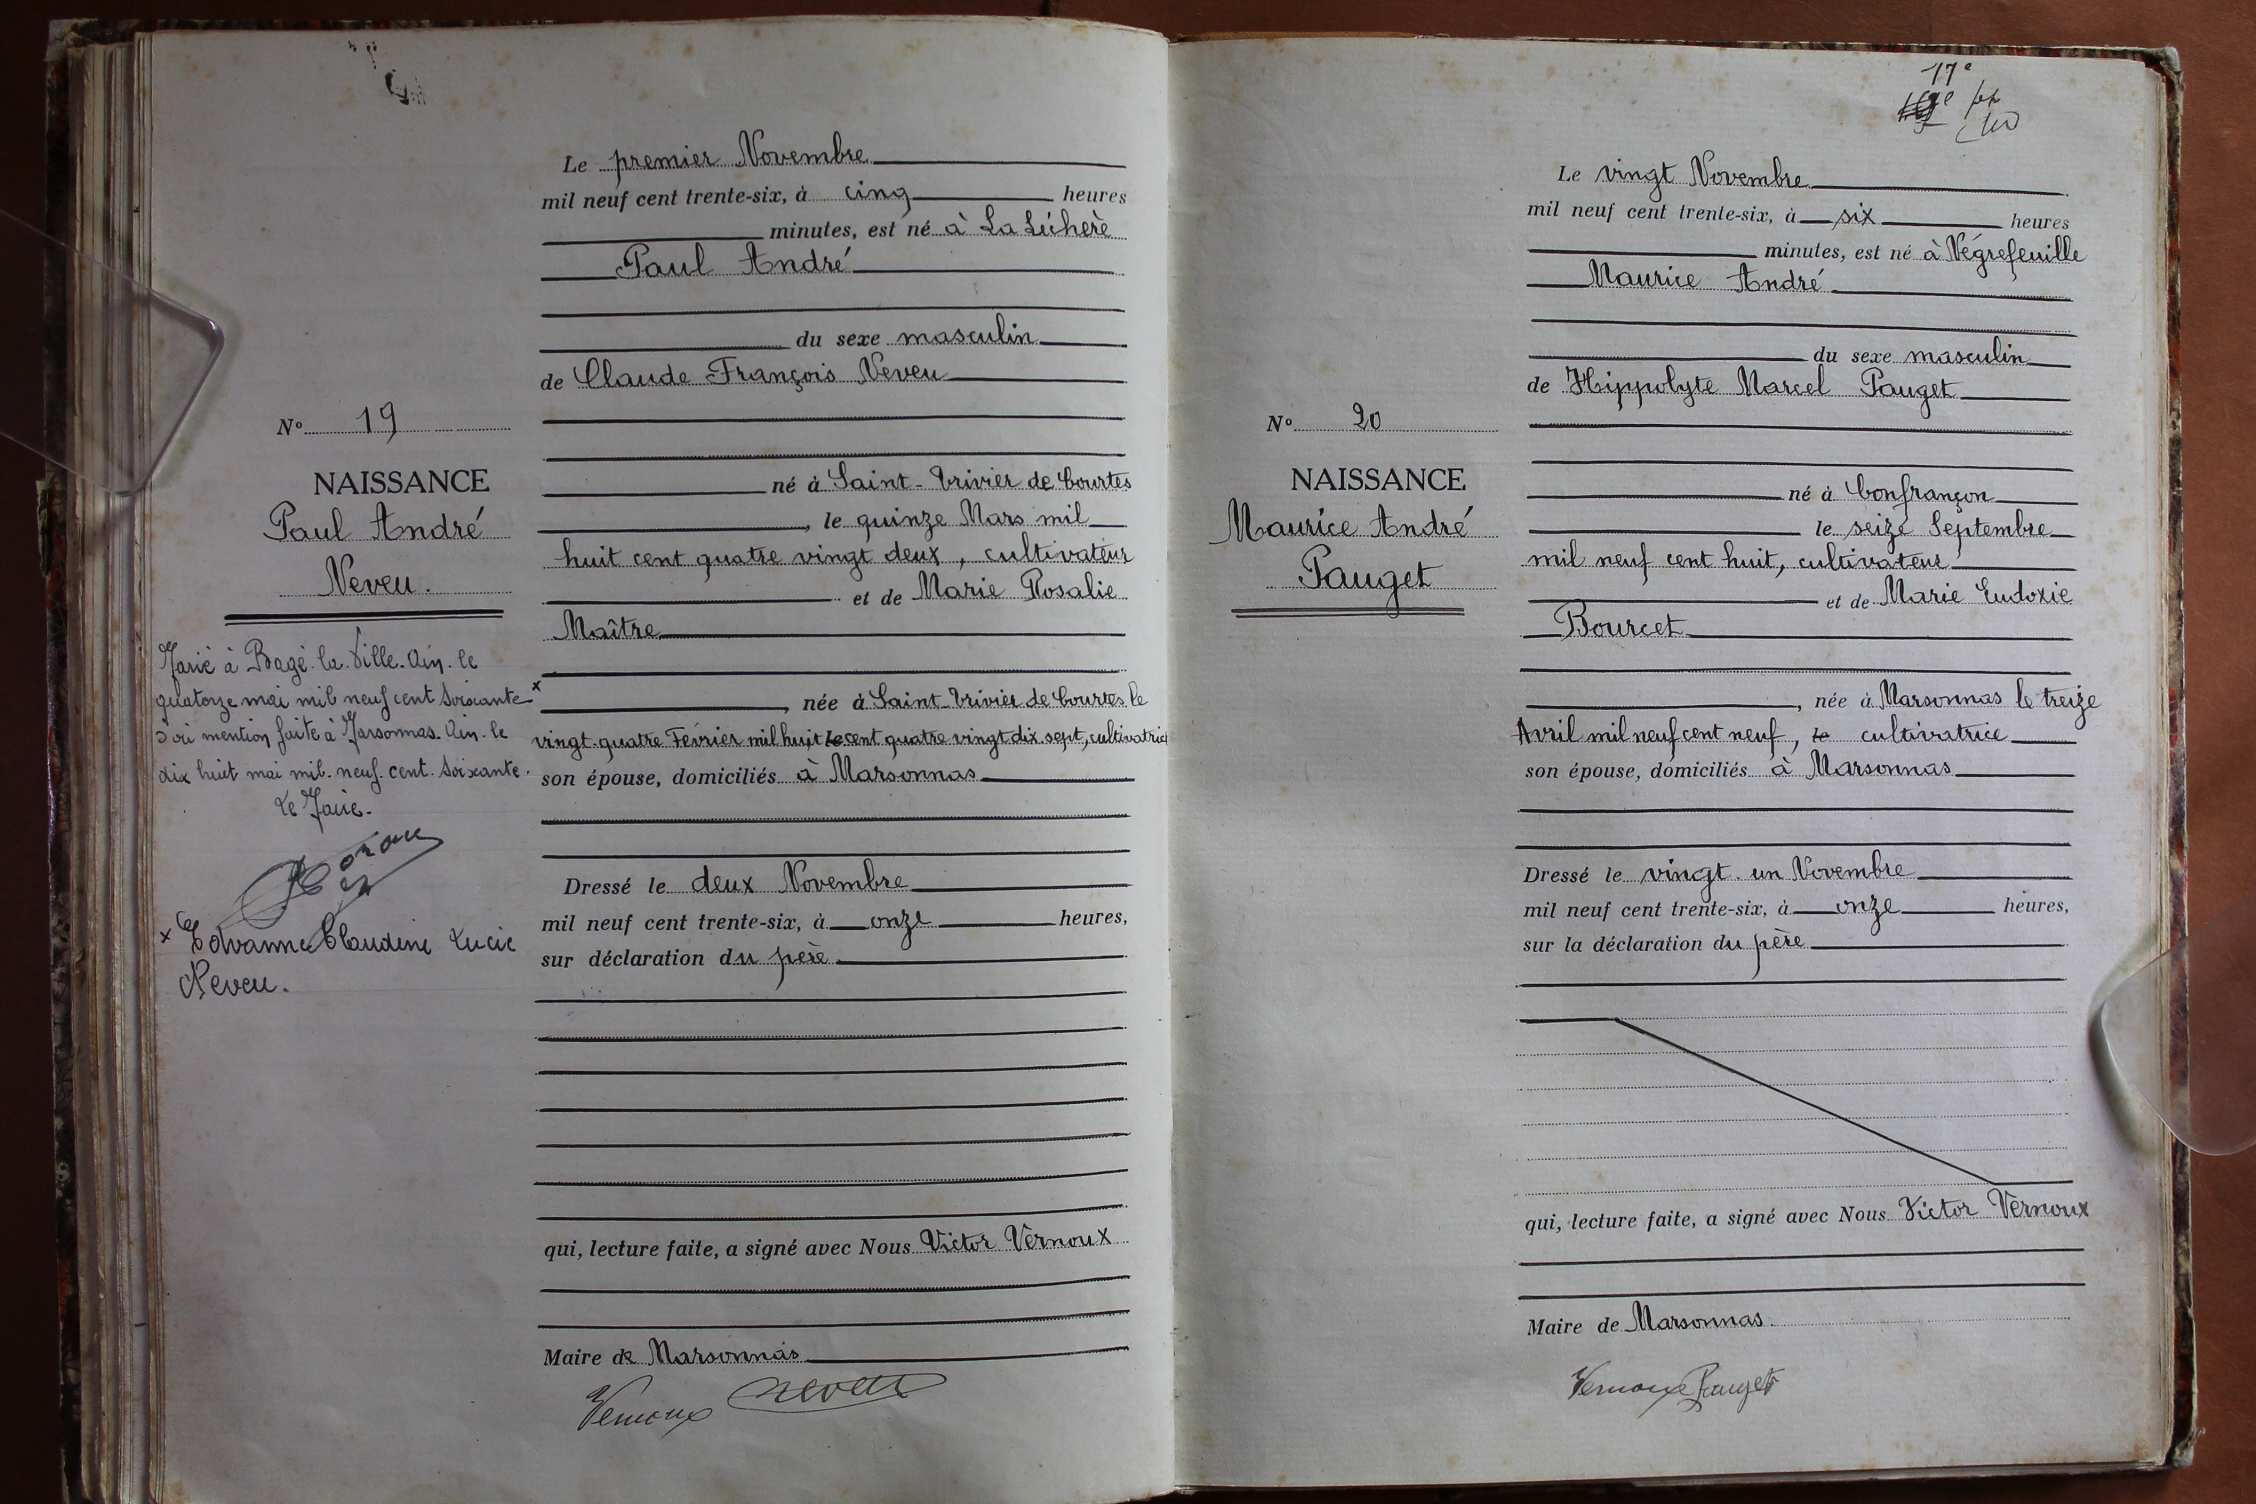 Le premier Novembre
mil neuf cent trente-six, à cinq heures
minutes, est né à La Léchère
Paul André
du sexe masculin
de Claude François Neveu
né à Saint-Trivier de Courtes
, le quinze Mars mil
huit cent quatre vingt deux, cultivateur
et de Marie Rosalie
Maître
, née à Saint-Trivier de Courtes le
vingt-quatre Février mil huit cent quatre vingt dix sept, cultivatrice
son épouse, domiciliés à Marsonnas
Dressé le deux Novembre
mil neuf cent trente-six, à onze heures,
sur déclaration du père
qui, lecture faite, a signé avec Nous Victor Vernoux
Maire de Marsonnas
Vernoux Neveu
No 19
NAISSANCE
Paul André
Neveu.
Marié à Bagé-la-Ville-Ain-le
quatorze mai mil neuf cent soixante x
mention faite à Marsonnas-Ain-le
dix huit mai mil-neuf-cent-soixante.
Le Maire.
x Claudine Lucie
Neveu.
17e
Le vingt Novembre
mil neuf cent trente-six, à six heures
minutes, est né à Négrefeuille
Maurice André
du sexe masculin
de Hippolyte Marcel Pauget
né à Confrançon
le seize Septembre
mil neuf cent huit, cultivateur
et de Marie Eudoxie
Bourcet
, née à Marsonnas le treize
Avril mil neuf cent neuf, le cultivatrice
son épouse, domiciliés à Marsonnas
Dressé le vingt-un Novembre
mil neuf cent trente-six, à onze heures,
sur la déclaration du père
qui, lecture faite, a signé avec Nous Victor Vernoux
Maire de Marsonnas.
Vernoux Pauget
No 20
NAISSANCE
Maurice André
Pauget